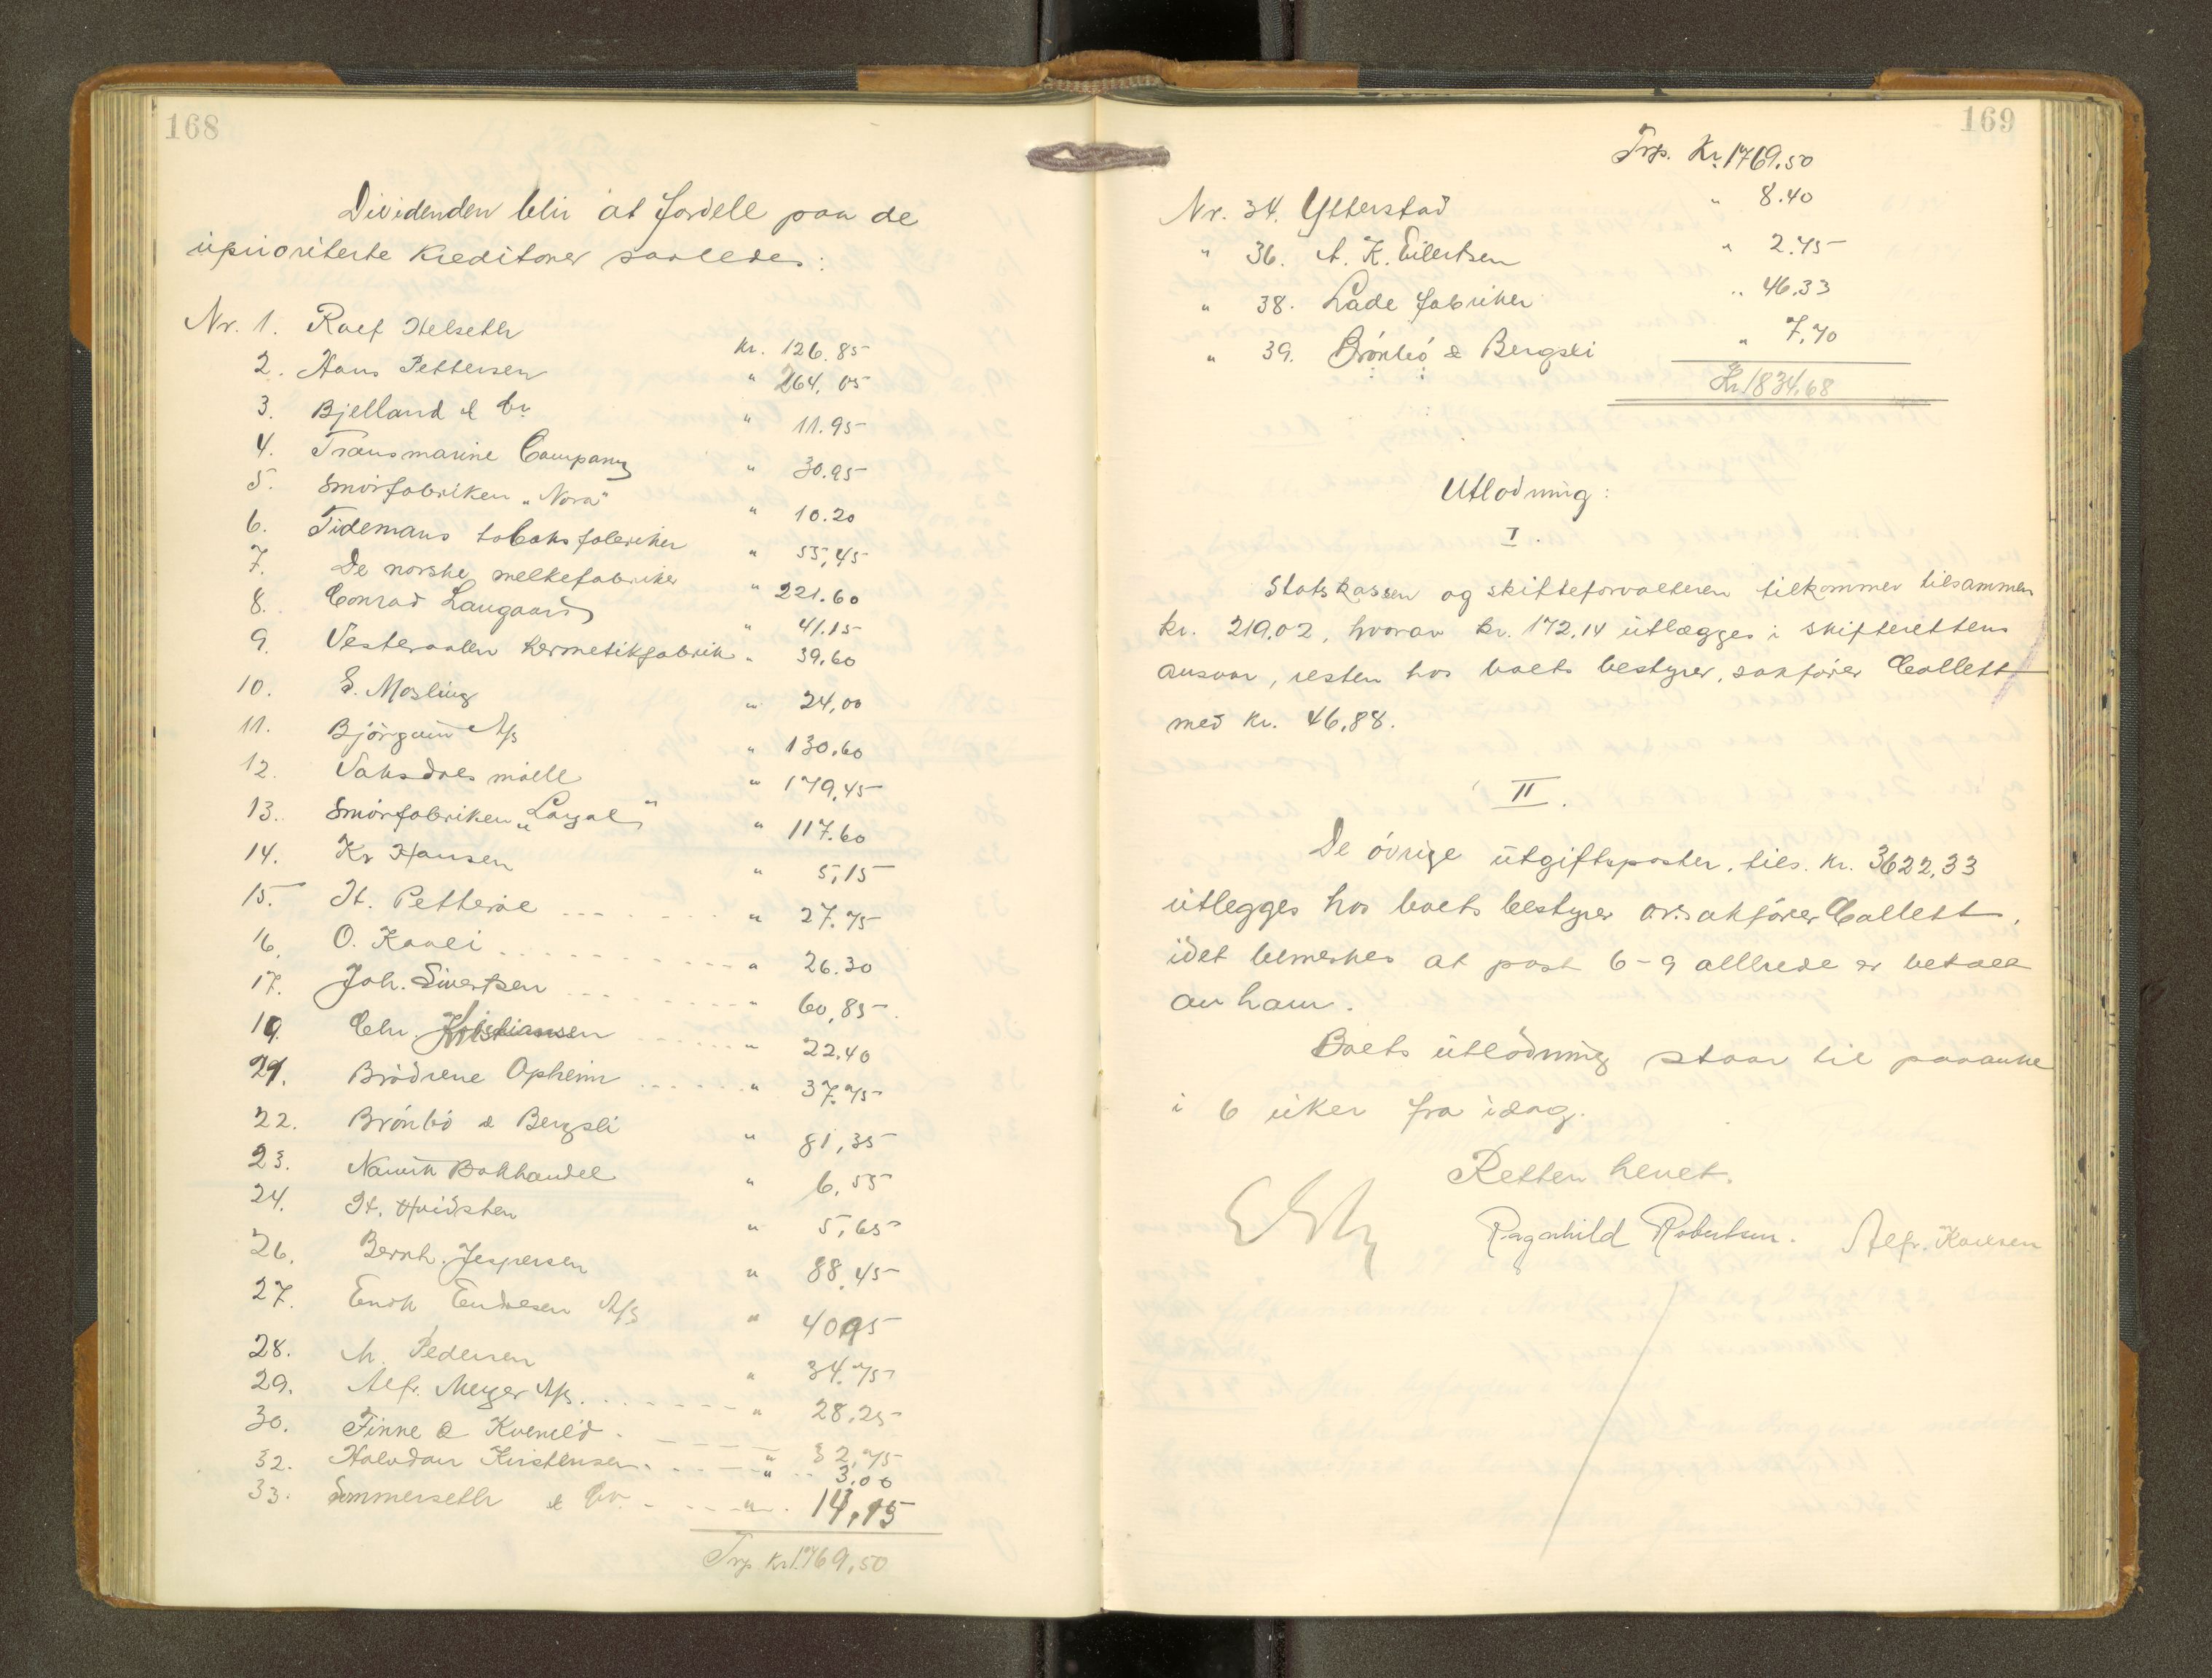 168
Dividenden blir at fordele paa de
uprioriterte kreditorer saaledes:
Nr. 1. Rolf Helseth kr. 126.85
2. Hans Pettersen " 264,05
3. Bjelland & Co " 11.95
4. Transmarine Company " 30.95
5. Smørfabriken "Nora" " 10.20
6. Tidemans tobaksfabriker " 55,45
7. De norske melkefabriker " 221.60
8. Conrad Langaard " 41.15
9. Vesteraalen hermetikfabrik " 39,60
10. E. Mosling " 24,00
11. Bjørgum A/s " 130.60
12. Vaksdals mølle " 179,45
13. Smørfabriken "Loyal" " 117.60
14. Kr Hansen " 5,15
15. H. Petterøe " 27.75
16. O. Kavli " 26.30
17. Joh. Sivertsen " 60,85
19. Chr. Kristiansen " 22.40
21. Brødrene Opheim " 37.75
22. Brónbó & Bergsli " 81,35
23. Narvik Bokhandel " 6,55
24. H. Hvidsten " 5,65
26. Bernh. Jespersen " 88,45
27. Enok Endresen A/s " 40.95
28. M. Pedersen " 34.75
29. Alfr. Meyer A/s. " 28,25
30. Finne & Kvenild " 32,75
32. Halvdan Kristensen " 3.00
33. Sommerseth & Co. " 14,15
Trsp kr. 1769,50
169
Trsp. Kr. 1769.50
Nr. 34. Ytterstad " 8.40
" 36. A. K. Eilertsen " 2.75
" 38. Lade fabriker " 46,33
" 39. Brónbó & Bergsli " 7,70
Kr. 1834,68
Utlodning:
I.
Statskassen og skifteforvalteren tilkommer tilsammen
kr. 219,02, hvorav kr. 172,14 utlægges i skifterettens
ansvar, resten hos boets bestyrer, sakfører Collett
med kr. 46,88.
II.
De óvrige utgiftsposter, tils. kr. 3622,33
utlegges hos boets bestyrer orsakfører Collett,
idet bemerkes at post 6-9 allerede er betalt
av ham.
Boets utlodning staar til paaanke
i 6 uker fra idag.
Retten hevet.
Ragnhild Robertsen. Alfr. Karlsen